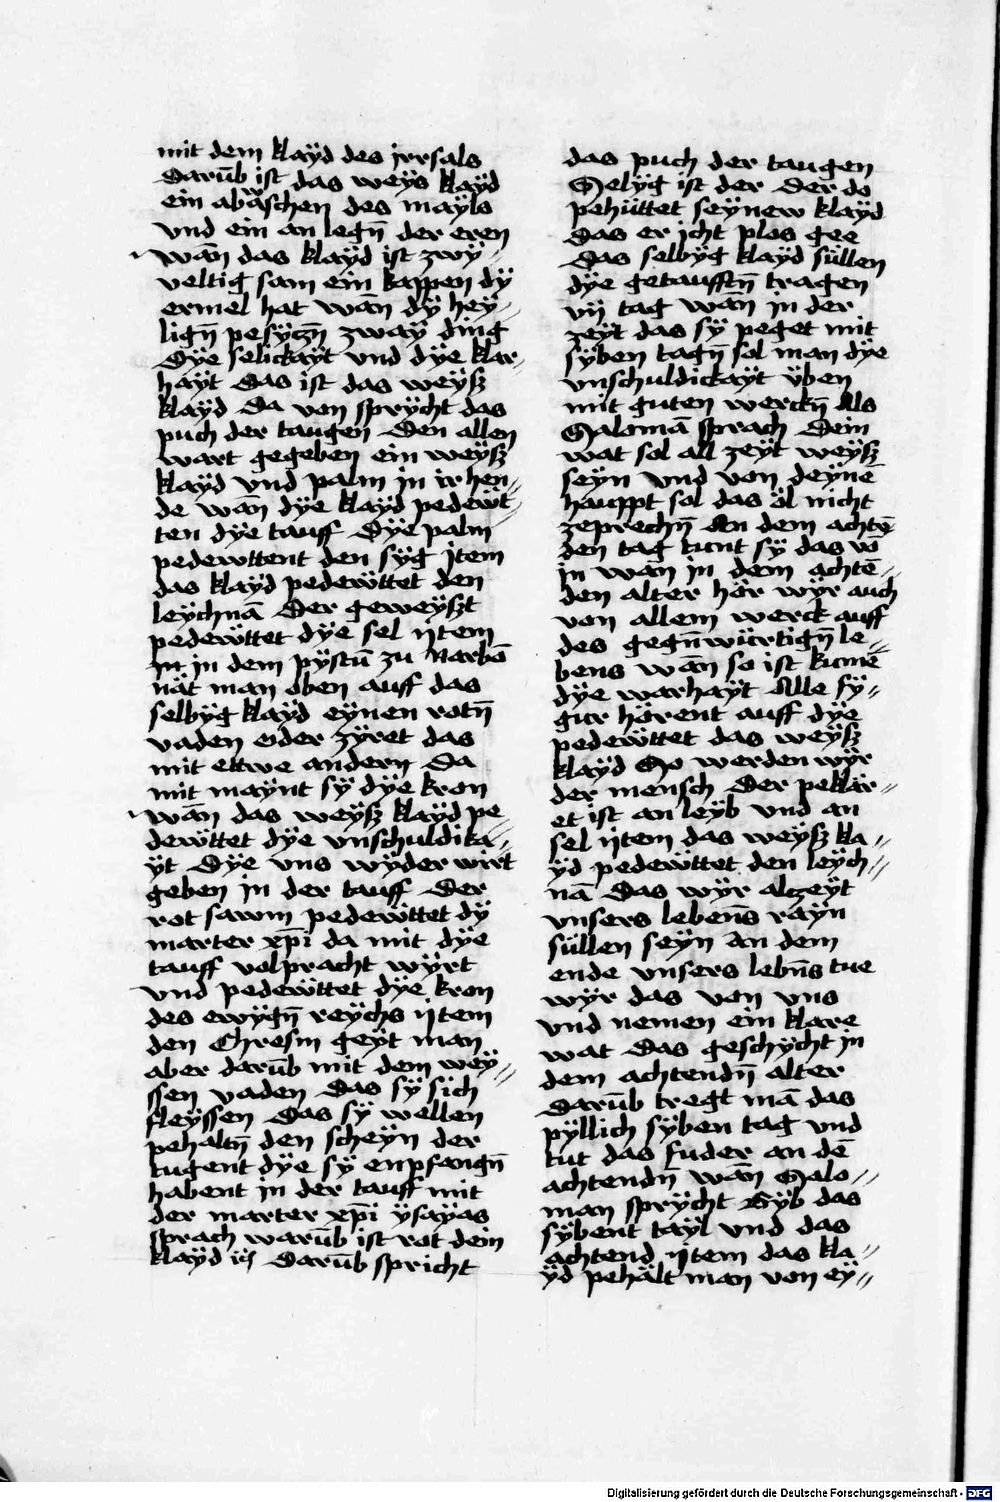 mit dem klaÿd des jrrsals
Darūb ist das weÿs klaÿd
ein abwäschen des mayls
vnd ein an legn̄ der eren
wān das klaÿd ist zwÿ//
veltig sam ein kappen dÿ
ermel hat wān dÿ heÿ//
lign̄ pesyczn̄ zwaÿ ding
Dÿe selickaÿt vnd dÿe klar//
haÿt Das ist das weÿsz
klaÿd Da von sprÿcht das
puch der taugen Den allen
wart gegeben ein weÿsz
klaÿd vnd palm in ir hen//
de wān dÿe klaÿd pedewt//
ten dÿe tauff Dÿe palm
pedewttent den sÿg jtem
das klaÿd pedewttet den
leÿchnā Der geweÿszt
pedewttet dÿe sel jtem
in dem pÿstū zu Narbō
nät man oben auff das
selbÿg klaÿd eÿnen rotn̄
vaden oder zÿret das
mit ettwe andern Da
mit maÿnt sÿ dÿe kron
wān das weÿsz klaÿd pe//
dewttet dÿe vnschuldika//
ÿt Dÿe vns wÿder wirt
geben in der tauff Der
rot sawm pedewttet dÿ
marter xp̄i da mit dÿe
tauff volpracht wÿrt
vnd pedewttet dÿe kron
des ewÿgn̄ reÿchs jtem
den Chresm geÿt man
aber darūb mit dem weÿ//
ssen vaden Das sÿ sich
fleÿssen Das sÿ wellen
pehaltn̄ den scheÿn der
tugent dÿe sÿ enpfangn̄
habent in der tauff mit
der marter xp̄i ÿsaÿas
sprach warūb ist rot dem
klaÿd Darūb spricht
das puch der taugen
Selÿg ist der Der do
pehüttet seÿnew klaÿd
das er icht plos gee
Das selbÿg klaÿd süllen
dÿe getaufftn̄ tragen
vij tag wān in der
zeÿt das sÿ peget mit
sÿben tagn̄ sol man dÿe
vnschuldickaÿt üben
mit guten werckn̄ Als
Salomā sprach Dein
wat sol all zeÿt weÿsz
seÿn vnd von deÿnē
hauppt sol das öl nicht
zeprechn̄ An dem achtē
den tag tunt sÿ das vō
in wān in dem achtē//
den alter hör wÿr auch
von allem werck auff
des gegn̄würtign̄ le//
bens wān so ist kumē
dÿe warhaÿt Alle fÿ//
gur hörent auff dÿe
pedewttet das weÿsz
klaÿd So werden wÿr
der mensch Der peklär//
et ist an leÿb vnd an
sel jtem das weÿsz kla//
ÿd pedewttet den leÿch//
nā Das wÿr alzeÿt
vnsers lebens raÿn
süllen seÿn an dem
ende vnsers lebn̄s tue
wÿr das von vns
vnd nemen ein klare
wat Das geschÿcht in
dem achtendn̄ alter
Darūb tregt mā das
pÿllich sÿben tag vnd
tut das fuder an dē
achtendn̄ wān Salo//
man sprÿcht Gÿb das
sÿbent taÿl vnd das
achtend jtem das kla//
ÿd pehält man von eÿ//
Digitalisierung gefördert durch die Deutsche Forschungsgemeinschaft - DFG